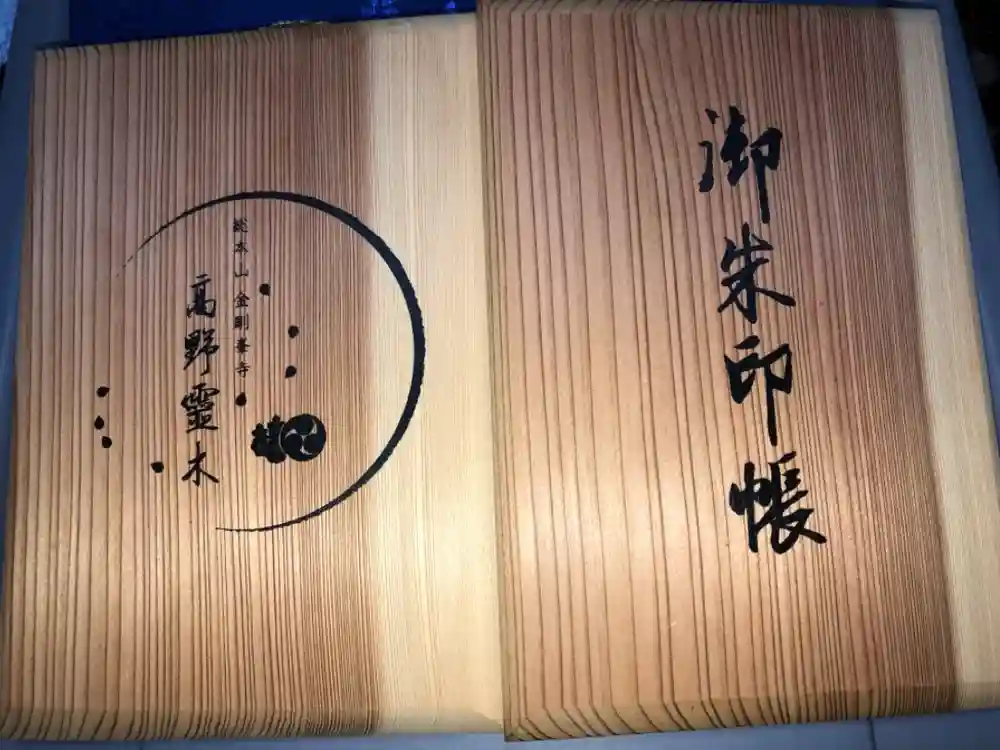 御朱印帳
総本山金剛峯寺
高野霊木